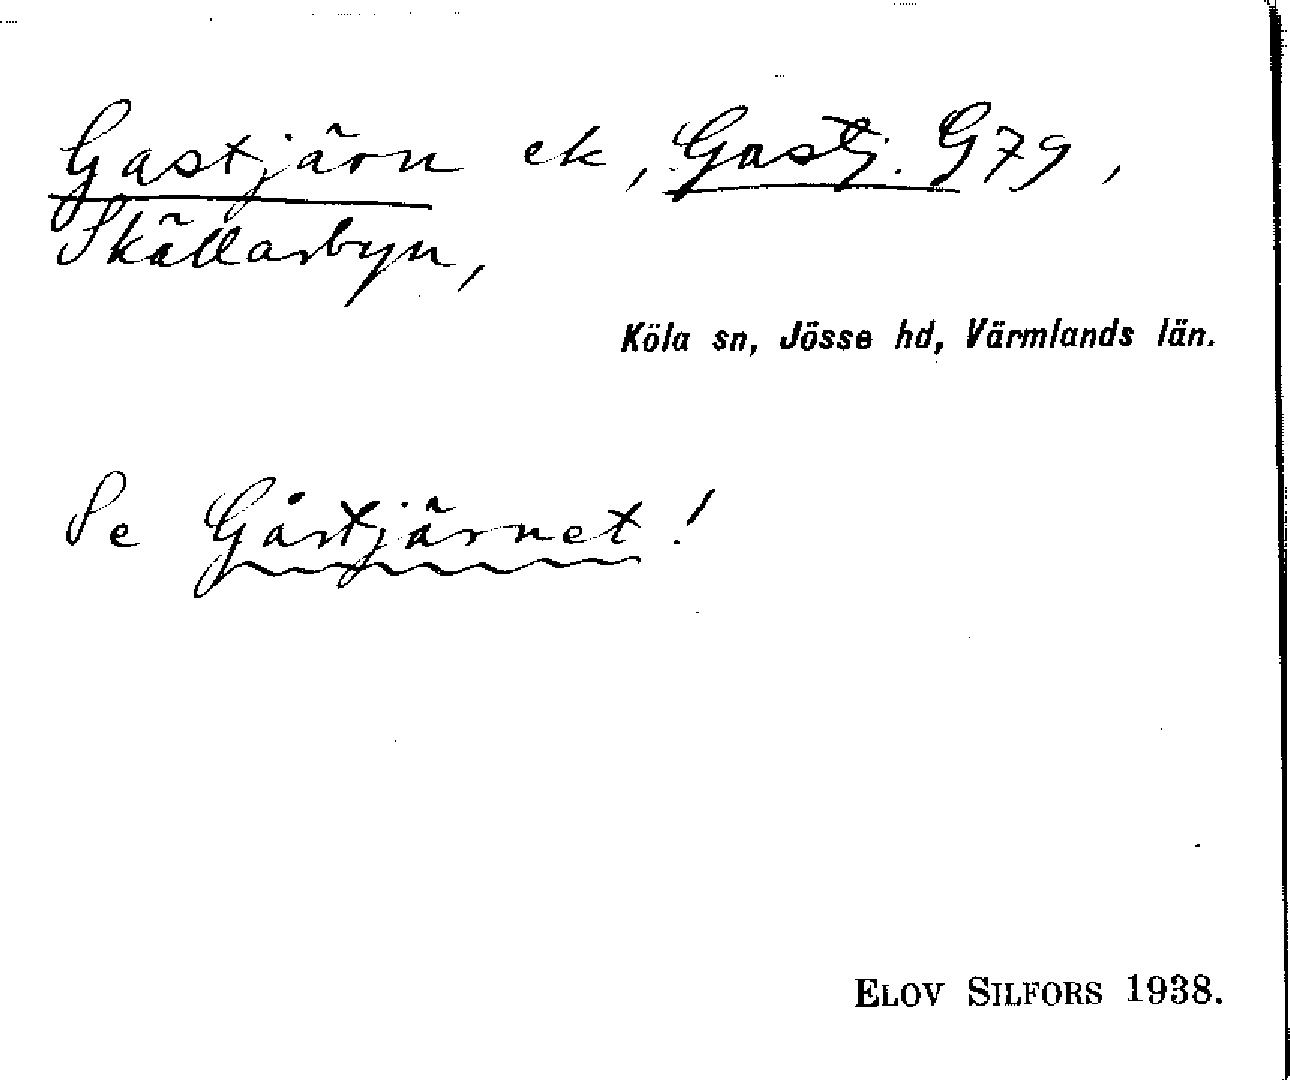 Gastjärn ek, Gastj. G79,
Skällarbyn,
Köla sn, Jösse hd, Värmlands län.
Se Gåstjärnet!
ELOV SILFORS 1938.